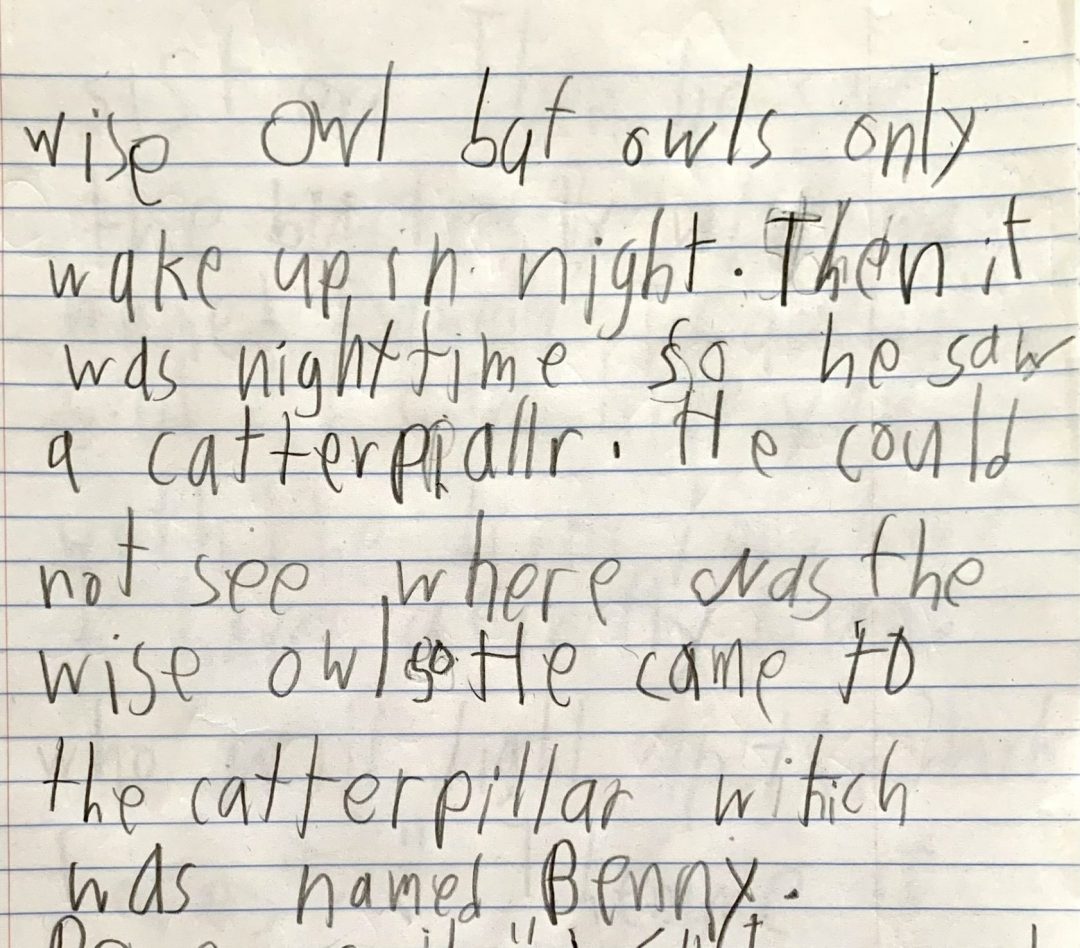 wise Owl but owls only
wake up in night. Then it
was nighttime so he saw
a catterpiallr. He could
not see where was the
wise owl so He came to
the catterpillar witich
was named Benny.